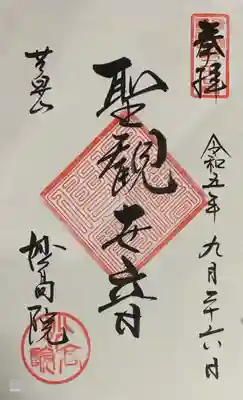 奉拝
令和五年 九月二十六日
聖観世音
妙高院